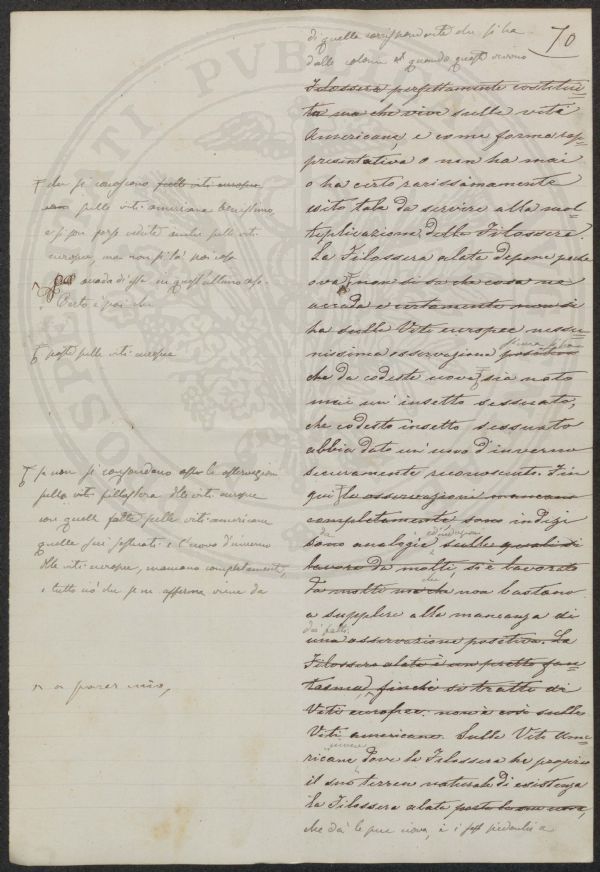 70
di quelle corrispondente che si ha
dalle colonie quando queste vivono
Filossera perfettamente costitui-
ta ma che vive sulle vita
Americana, e come forma rap-
presentativa o non ha mai
o ha certo rarissimamente
esito tale da servire alla mol-
tiplicazione della Filossera.
La Filossera alata depone poche
ova, non si sa che cosa ne
accada e certamente non si
ha sulle Viti europee nessu-
nissima osservazione positiva
che da codeste uova, sia nato
mai un'insetto sessuato,
che codesto insetto sessuato
abbia dato un'uovo d'inverno
sicuramente riconosciuto. Fin
qui le osservazioni mancano
completamente sono indizi
sono analogie sulle quali si
lavora da molti, si è lavorato
da molti ma che non bastano
a supplire alla mancanza di
dei fatti
una osservazione positiva. La
Filossera alata è un piretto fan-
tasma, finchè si tratta di
Viti europee non è così sulle
Viti americane. Sulle Viti Ame-
ricane dove la Filossera ha proprio
il suo terreno naturale di esistenza
la Filossera alata
che dà le sue uova, e i
che si conoscono sulle viti europee
sulle viti americane benissimo,
e si son forse vedute anche sulle viti
europee, ma non si sa poi cosa
accada di esse in quest'ultimo caso.
Certo è poi che
poste sulle viti europee
se non si confondano le osservazioni
sulla vita fillossera delle viti europee
con quelle fatte sulle viti americane
quelle sui sessuati e l'uovo d'inverno
delle viti europee, mancano completamente,
e tutto ciò che se ne afferma viene da
a parer mio,